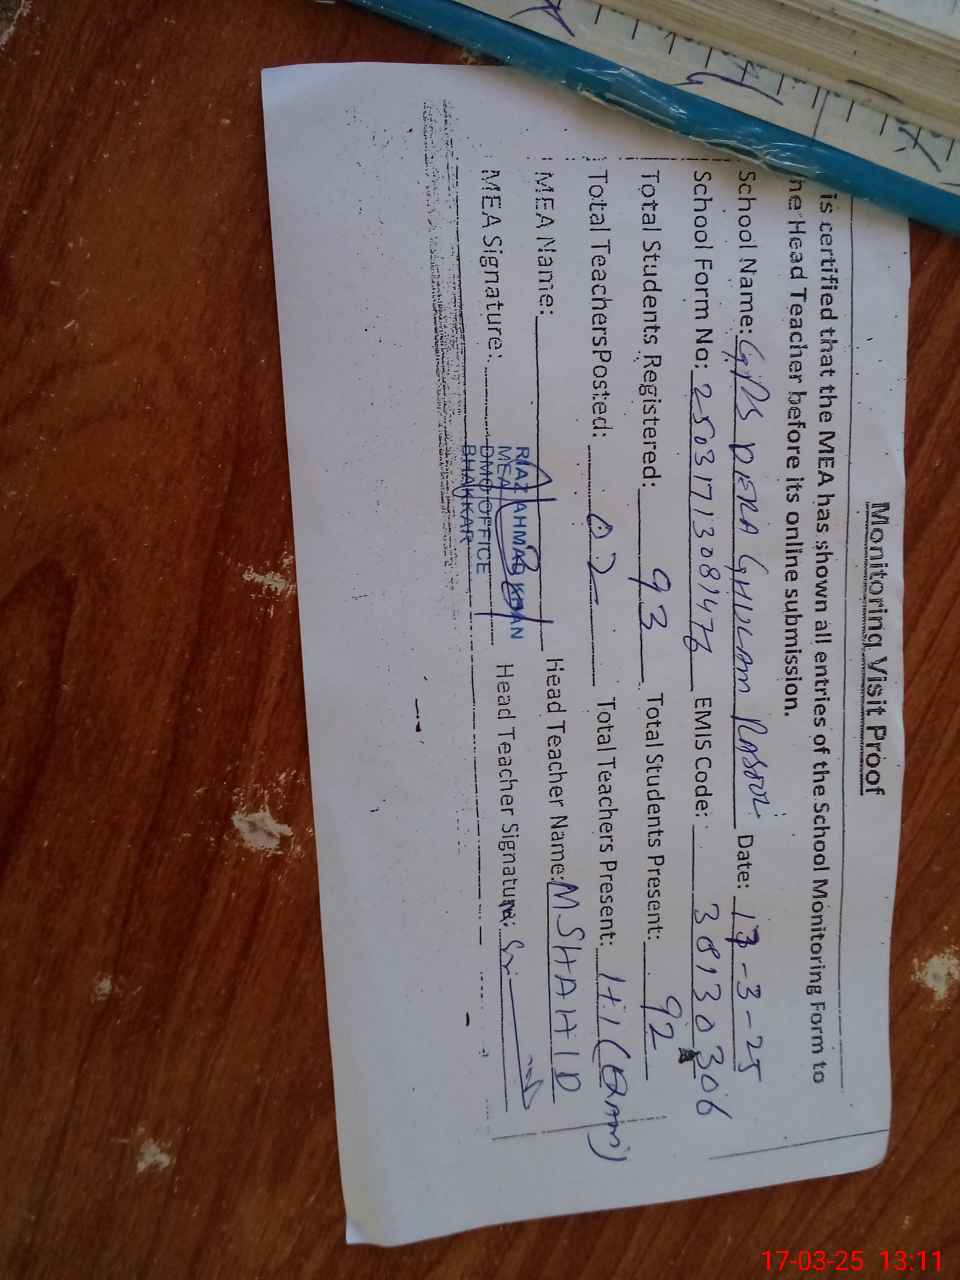 Monitoring Visit Proof
is certified that the MEA has shown all entries of the School Monitoring Form to
he Head Teacher before its online submission.
School Name: GPS DERA GHULAM RASOOL Date: 17-3-25
School Form No: EMIS Code: 38130306
Total Students Registered: 93 Total Students Present: 92
Total TeachersPosted: 02 Total Teachers Present: 1+1(Exam)
MEA Name: Head Teacher Name: M SHAHID
MEA Signature: Head Teacher Signature:
RIAZ AHMAD KHAN
MEA
DMO OFFICE
BHAKKAR
17-03-25 13:11